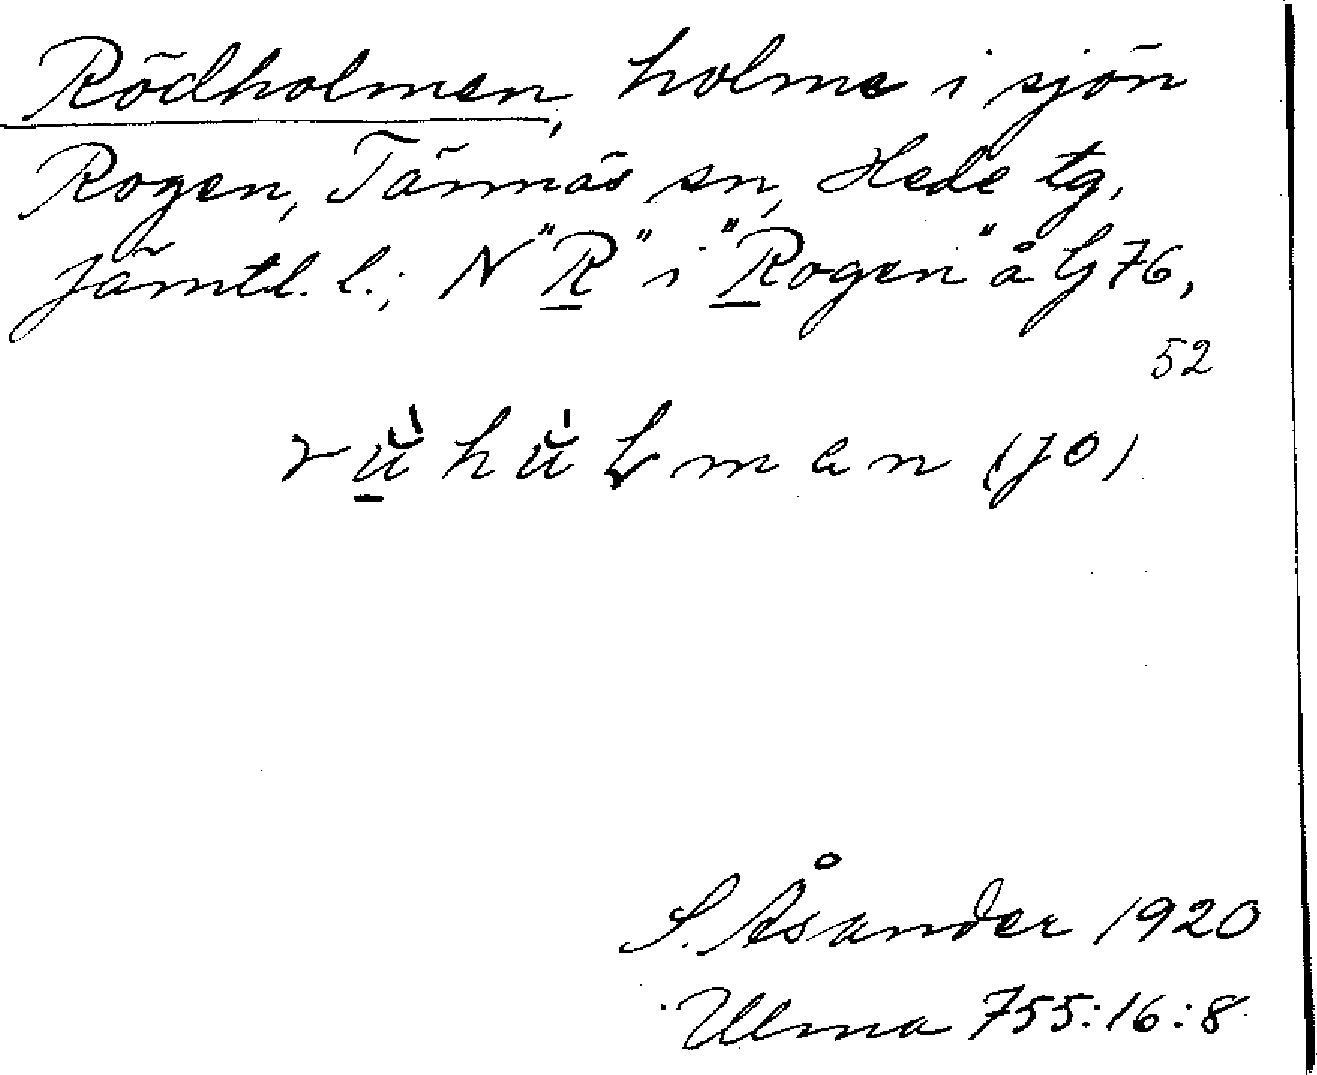 Rödholmen, holme i sjön
Rogen, Tännäs sn, Hede tg,
Jämtl. l.; N "R" i "Rogen" å G 76,
52
S. Åsander 1920
Ulma 755:16:8